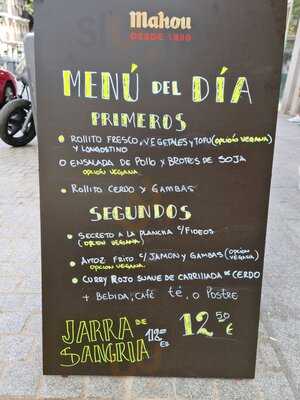 Mahou
DESDE 1890
MENÚ DEL DÍA
PRIMEROS
ROLLITO FRESCO, VEGETALES y TOFU (OPCIÓN VEGANA)
y LANGOSTINO
O ENSALADA DE POLLO x BROTES DE SOJA
OPCIÓN VEGANA
ROLLITO CERDO x GAMBAS
SEGUNDOS
SECRETO A LA PLANCHA c/FIDEOS
(OPCIÓN VEGANA)
ARROZ FRITO c/JAMÓN y GAMBAS (OPCIÓN VEGANA)
OPCION VEGANA
CURRY ROJO SUAVE DE CARRILLADA DE CERDO
+ BEBIDA, CAFÉ té, o POSTRE
JARRA DE SANGRIA
12.50 €